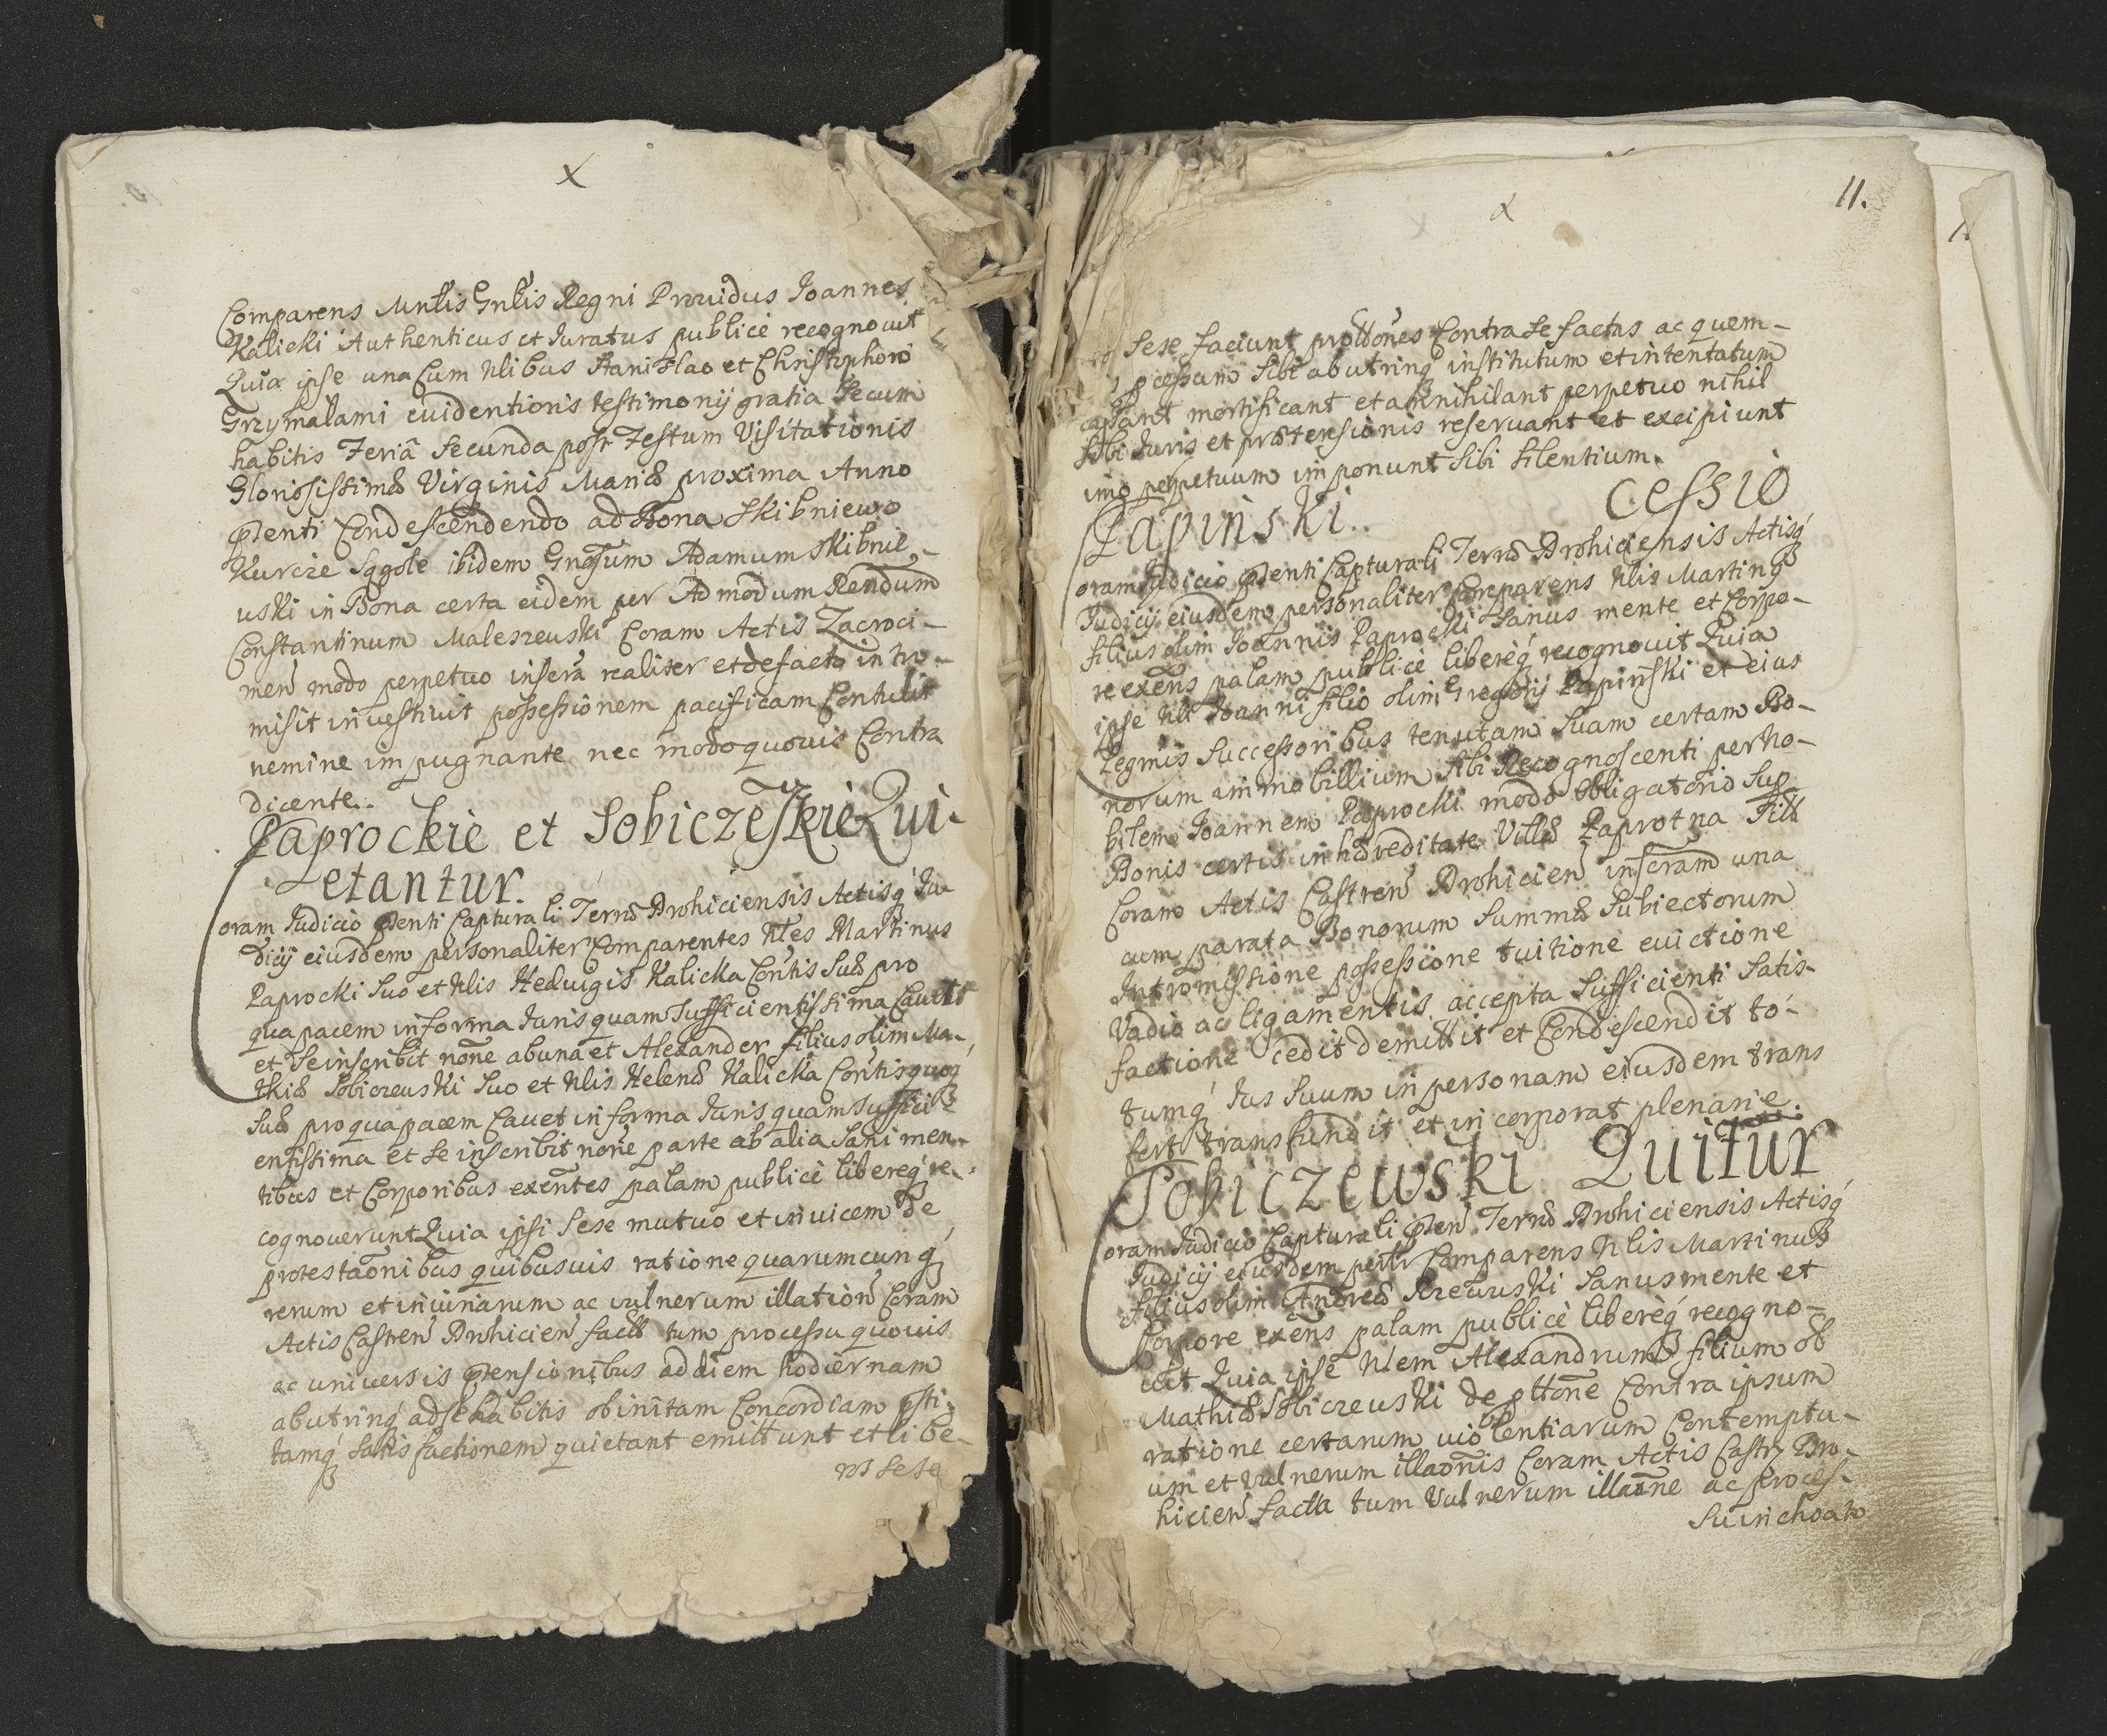 x
Comparens Mnlis Gnlis Regni Providus Joannes
Kalicki Authenticus et Juratus publicè recognovit
Quia ipse una cum Nlibus Stanislao et Christophoro
Grzymalami evidentioris testimonij gratia secum
habitis Feriâ secunda post Festum Visitationis
Gloriosissimæ Virginis Mariæ proxima Anno
pnti Condescendendo ad Bona Skibniewo
Kurcze ibidem Gnosum Adamum Skibnie-
wski in Bona certa eidem per Admodum Rendum
Constantinum Maleszewski Coram Actis Zacroci-
men modo perpetuo inscra realiter et de facto intro-
misit investivit possessionem pacificam Contulit
nemine impugnante nec modo quovis Contra
dicente.
Paprockie et Sobiczeskie Qui-
etantur.
Coram Judicio pnti Capturali Terræ Drohiciensis Actisq Ju
dicij eiusdem personaliter Comparentes Nles Martinus
Paprocki suo et Nlis Hedvigis Kalicka Contis suæ pro
qua pacem in forma Juris quam sufficientissima Cavet
et se inscribit none ab una et Alexander filius olim Ma-
thiæ Sobiczewski suo et Nlis Helenæ Kalicka Contis quoq
suæ pro qua pacem Cavet in forma Juris quam suffici
entissima et se inscribit none parte ab alia sani men-
tibus et Corporibus exentes palam publicè libereq re-
cognoverunt Quia ipsi sese mutuo et invicem de
protestaonibus quibusvis ratione quarumcunq
rerum et iniuriarum ac vulnerum illation Coram
Actis Castren Drohicien factis tum processu quovis
ac universis ptensionibus ad diem hodiernam
ab utrinq ad se habitis ob initam Concordiam psti-
tamq satisfactionem quietant emittunt et libe-
ros sese
11.
x
sese faciunt prottones Contra se factas ac quem-
pcessum sibi ab utrinq institutum et intentatum
cassant mortificant et annihilant perpetuo nihil
sibi Juris et prætensionis reservant et excipiunt
imo perpetuum imponunt sibi silentium.
Łapinski. Cessio
Coram Judicio pnti Capturali Terræ Drohiciensis Actisq
Judicij eiusdem personaliter Comparens Nlis Martinus
filius olim Joannis Paprocki sanus mente et Corpo-
re exens palam publicè libereq recognovit Quia
ipse Nli Joanni filio olim Gregorij Łapinski et eius
Legmis Successoribus tenutam suam certam Bo-
norum immobillium sibi Recognoscenti per No-
bilem Joannem Paprocki modo obligatorio sup
Bonis certis in hæreditate Villæ Paprotna
Coram Actis Castren Drohicien inscram una
cum parata Bonorum summæ subiectorum
Intromissione possessione tuitione evictione
Vadio ac ligamentis accepta sufficienti satis-
factione cedit demittit et Condescendit to-
tumq Jus suum in personam eiusdem trans
fert transfundit et incorporat plenarie.
Sobiczewski Quitur
Coram Judicio Capturali pnti Terræ Drohiciensis Actisq
Judicij eiusdem pertr Comparens Nlis Martinus
filius olim Andreæ Szczewski sanus mente et
Corpore exens palam publicè libereq recogno-
vit Quia ipse Nlem Alexandrum filium ol
Mathiæ Sobiczewski de pttone Contra ipsum
ratione certarum violentiarum Contemptu-
um et vulnerum illaonis Coram Actis Castr Dro-
hicien facta tum vulnerum illaone ac proces-
su inchoato